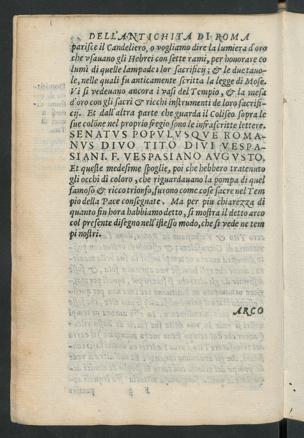 DELL'ANTICHITA DI ROMA
parisce il Candeliero, o vogliamo dire la lumiera d'oro
che vsauano gli Hebrei con sette rami, per honorare co
lumi di quelle lampade i lor sacrificij; & le due tauo-
le, nelle quali fu anticamente scritta la legge di Mose.
Vi si vedeuano ancora i vasi del Tempio, & la mesa
d'oro con gli sacri & ricchi instrumenti de loro sacrifi-
cij. Et dall'altra parte che guarda il Coliseo sopra le
sue colõne nel proprio fregio sono le infrascritte lettere.
SENATVS POPVLVSQVE ROMA-
NVS DIVO TITO DIVI VESPA-
SIANI. F. VESPASIANO AVGVSTO.
Et queste medesime spoglie, poi che hebbero trattenuto
gli occhi di coloro, che riguardauano la pompa di quel
famoso & ricco trionfo, furono come cose sacre nel Tem
pio della Pace consegnate. Ma per piu chiarezza di
quanto fin hora habbiamo detto, si mostra il detto arco
col presente disegno nell'istesso modo, che si vede ne tem
pi nostri.
ARCO